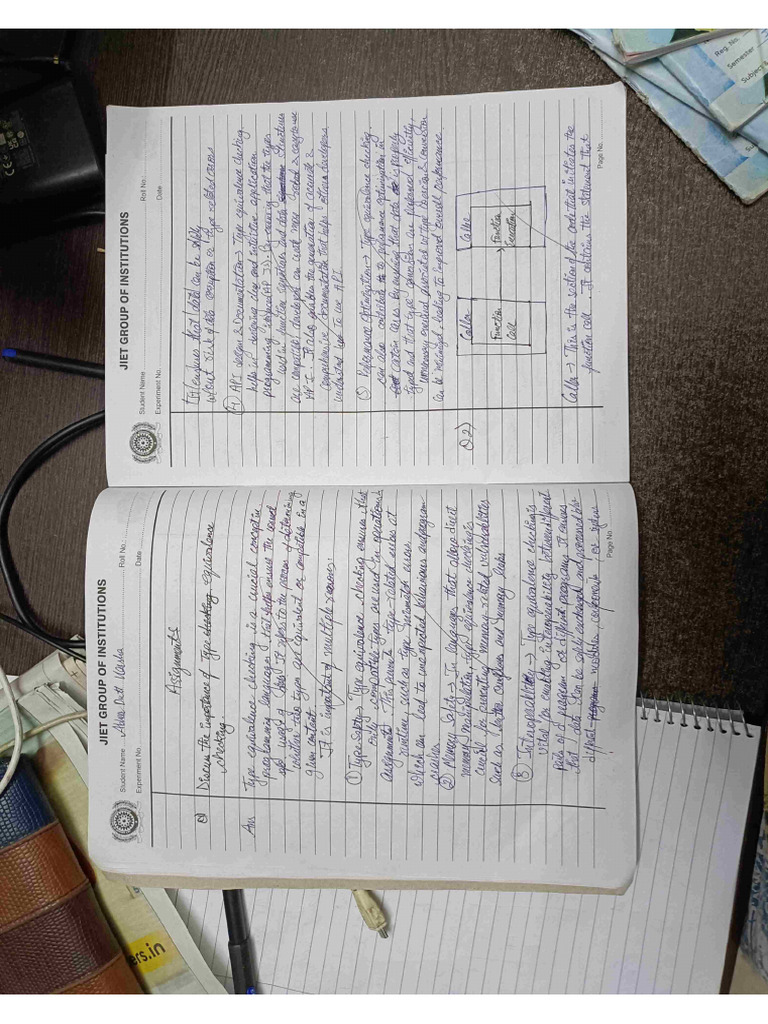 JIET GROUP OF INSTITUTIONS
Student Name
Roll No.
Experiment No.
Date
Assignment
Q Discuss the importance of Type checking equivalence
checking.
Ans Type equivalence checking is a crucial concept in
programming languages that helps ensure the
It refers to the process of determining
whether two types are equivalent or compatible in a
given context.
It is important of multiple reasons:
① Type Safety → Type equivalence checking ensures that
only compatible types are used in operations
assignments. This prevents type-related errors at
runtime, such as type mismatch errors.
which can lead to unexpected behaviours or program
crashes
② Memory Safety → In languages that allow direct
memory manipulation, type equivalence checking is
crucial for preventing memory related vulnerabilities
such as buffer overflows and memory leaks
③ Interoperability → Type equivalence checking is
vital for enabling interoperability between different
parts of a program or different programs. It ensures
that data can be safely exchanged and processed b/w
different modules, components, or systems
Page No.
JIET GROUP OF INSTITUTIONS
Student Name
Roll No.
Experiment No.
Date
It ensures that data can be safely
w/out risk of data corruption or type related errors
④ API design & Documentation → Type equivalence checking
helps in designing clear and intuitive application
programming interfaces (API's). By ensuring that the types
used in function signatures and data structures
are compatible, developers can create more robust & easy to use
API's. It also enables the generation of accurate &
comprehensive documentation that helps other developers
understand how to use API.
⑤ Performance Optimization → Type equivalence checking
can also contribute to performance optimization in
certain cases. By ensuring that data is properly
typed and that type conversions are performed efficiently,
unnecessary overhead associated w/ type coercion & conversion
can be minimized, leading to improved overall performance
Q2)
Caller
Callee
Function
Call
Function
Execution
Caller → This is the section of the code that initiates the
function call. It contains the statement that
Page No.
Reg. No.
Semester
Subject
ers.in